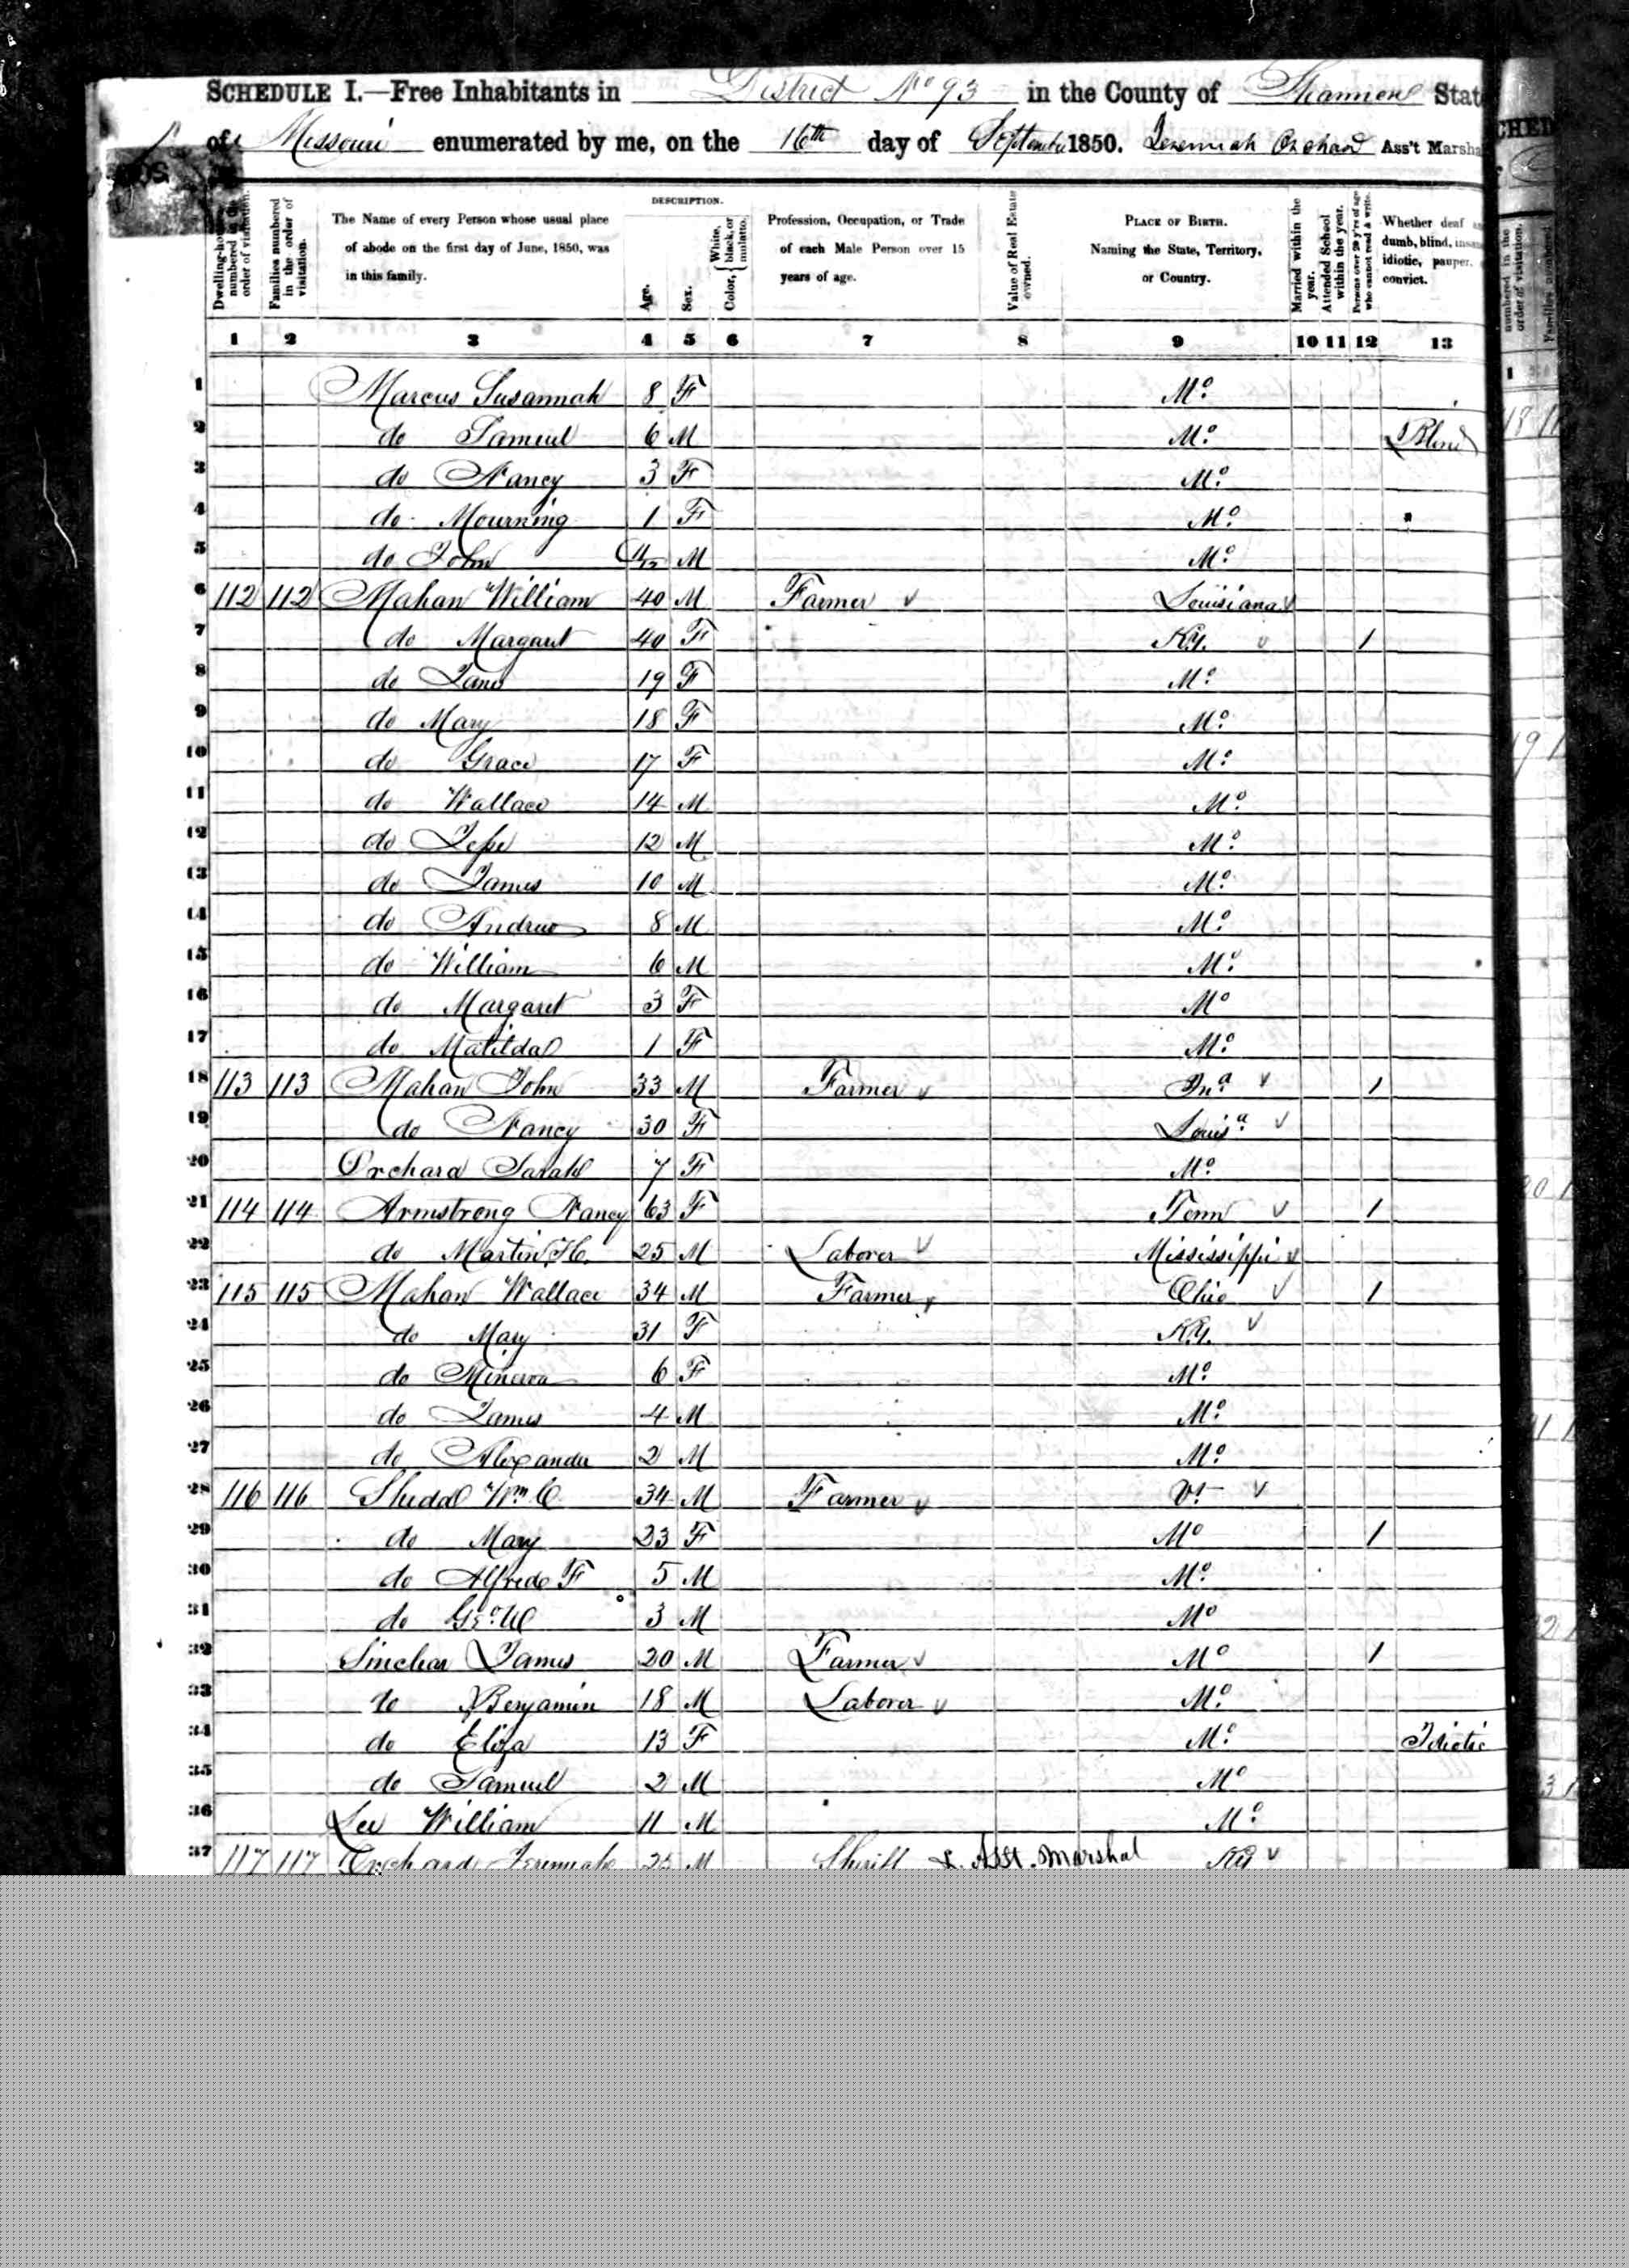 SCHEDULE I.—Free Inhabitants in District No 93 in the County of Shannon State
of Missouri enumerated by me, on the 16th day of September 1850. Jeremiah Orchard Ass't Marsha
Dwelling-houses numbered in the order of visitation.
Families numbered in the order of visitation.
The Name of every Person whose usual place of abode on the first day of June, 1850, was in this family.
DESCRIPTION.
Age.
Sex.
Color, { White, black, or mulatto.
Profession, Occupation, or Trade of each Male Person over 15 years of age.
Value of Real Estate owned.
PLACE OF BIRTH. Naming the State, Territory, or Country.
Married within the year.
Attended School within the year.
Persons over 20 y'rs of age who cannot read & write.
Whether deaf dumb, blind, insane idiotic, pauper, convict.
1 2 3 4 5 6 7 8 9 10 11 12 13
1 Marcus Susannah 8 F Mo
2 do Samuel 6 M Mo Blind
3 do Nancy 3 F Mo
4 do Mourning 1 F Mo
5 do John 4/12 M Mo
6 112 112 Mahan William 40 M Farmer Louisiana
7 do Margaret 40 F Ky. 1
8 do Jane 19 F Mo
9 do Mary 18 F Mo
10 do Grace 17 F Mo
11 do Wallace 14 M Mo
12 do Jesse 12 M Mo
13 do James 10 M Mo
14 do Andrew 8 M Mo
15 do William 6 M Mo
16 do Margaret 3 F Mo
17 do Matilda 1 F Mo
18 113 113 Mahan John 33 M Farmer Ina 1
19 do Nancy 30 F Louisa
20 Orchard Sarah 7 F Mo
21 114 114 Armstrong Nancy 63 F Tenn 1
22 do Martin H. 25 M Laborer Mississippi
23 115 115 Mahan Wallace 34 M Farmer Ohio 1
24 do Mary 31 F Ky.
25 do Minerva 6 F Mo
26 do James 4 M Mo
27 do Alexander 2 M Mo
28 116 116 Shedd Wm C 34 M Farmer Vt
29 do Mary 23 F Mo 1
30 do Alfred F 5 M Mo
31 do Geo W 3 M Mo
32 Sinclar James 20 M Farmer Mo 1
33 do Benjamin 18 M Laborer Mo
34 do Eliza 13 F Mo Idiotic
35 do Samuel 2 M Mo
36 Lee William 11 M Mo
37 117 117 Orchard Jeremiah M Sheriff & Asst. Marshal Ky